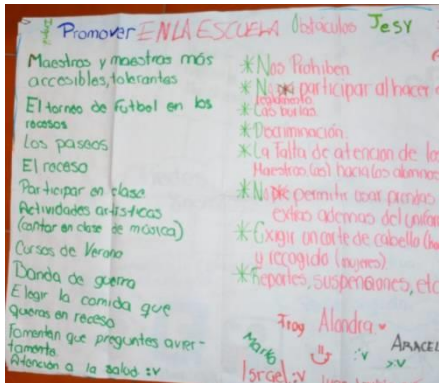 Promover EN LA ESCUELA Obstáculos JESY
Maestros y maestras más
accesibles, tolerantes
El torneo de Futbol en los
recesos
Los paseos
El receso
Participar en clase
Actividades artísticas
(cantar en clase de música)
Cursos de Verano
Banda de guerra
Elegir la comida que
quieras en receso
Fomentan que preguntes aver-
tamente
Atención a la salud :v
* Nos Prohiben
* No participar al hacer
reglamento
* Las burlas
* Discriminación
* La falta de atención de los
Maestros (as) hacia los alumnos
* No permitir usar prendas
extras ademas del unifor
* Exigir un corte de cabello
y recogido (mujeres)
* Reportes, suspensiones, etc
Frog Alondra
Mario :v ARACEL
Isrcel :v >:v